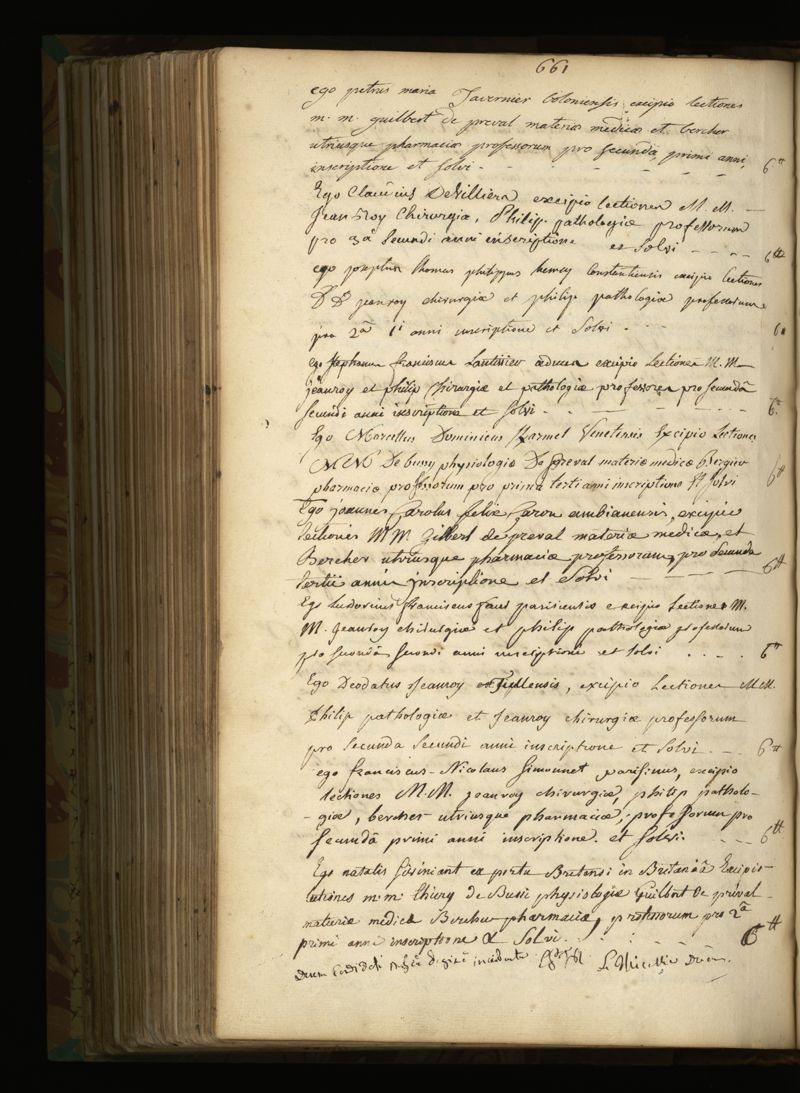 661
ego petrus maria Tavernier boloniensis excipio lectiones
m. m. guilbert de preval materiæ medicæ et bercher
utriusque pharmaciæ professorum pro secunda primi anni
inscriptione et solvi - 6tt
Ego Claudius DeVilliers excipio lectiones M. M.
Jean Roy Chirurgiæ, Philip pathologiæ professorum
pro 3a secundi anni inscriptione et Solvi - 6tt
ego josephus thomas philippus constantiensis excipio lectiones
DD jeanroy chirurgiæ et philip pathologiæ professorum
pro 2a 1i anni inscriptione et Solvi - 6
Ego stephanus franciscus excipio Lectiones M. M.
jeanroy et philip Chirurgiæ et pathologiæ professores pro secundâ
secundi anni inscriptione et solvi - 6tt
Ego Marcellus Dominicus Harmel Venetensis Excipio Lectiones
MM De bussy physiologiæ De preval materiæ medicæ
pharmaciæ professorum pro prima tertii anni inscriptione Et solvi 6tt
Ego joannes Carolus felix Caron ambianensis, excipio
Lectiones MM Gilbert de preval materiæ medicæ, et
Bercher utriusque pharmaciæ professorum, pro secunda
tertii anni inscriptione et Solvi - 6tt
Ego Ludovicus franciscus faut parisiensis excipio Lectiones M.
M. Jeanroy chirurgiæ et philip pathologiæ professorum
pro secundâ secundi anni inscriptione et solvi - 6tt
Ego Deodatus Jeanroy Tullensis, excipio Lectiones M.M.
Philip pathologiæ et Jeanroy chirurgiæ professorum
pro Secunda Secundi anni inscriptione et Solvi - 6tt
ego franciscus-Nicolaus Simonnet parisinus, excipio
lectiones M.M. jeanroy chirurgiæ, philip patholo-
-giæ, bercher utriusque pharmaciæ, professorum pro
secundâ primi anni inscriptione. et Solvi. - 6tt
Ego natalis ex portu in Britaniâ Excipio
m. m. thiery de Bussi physiologiæ Guilbert de préval
materiæ medicæ Bercher pharmaciæ, professorum pro 2a
primi anni inscriptione & Solvi. 6tt